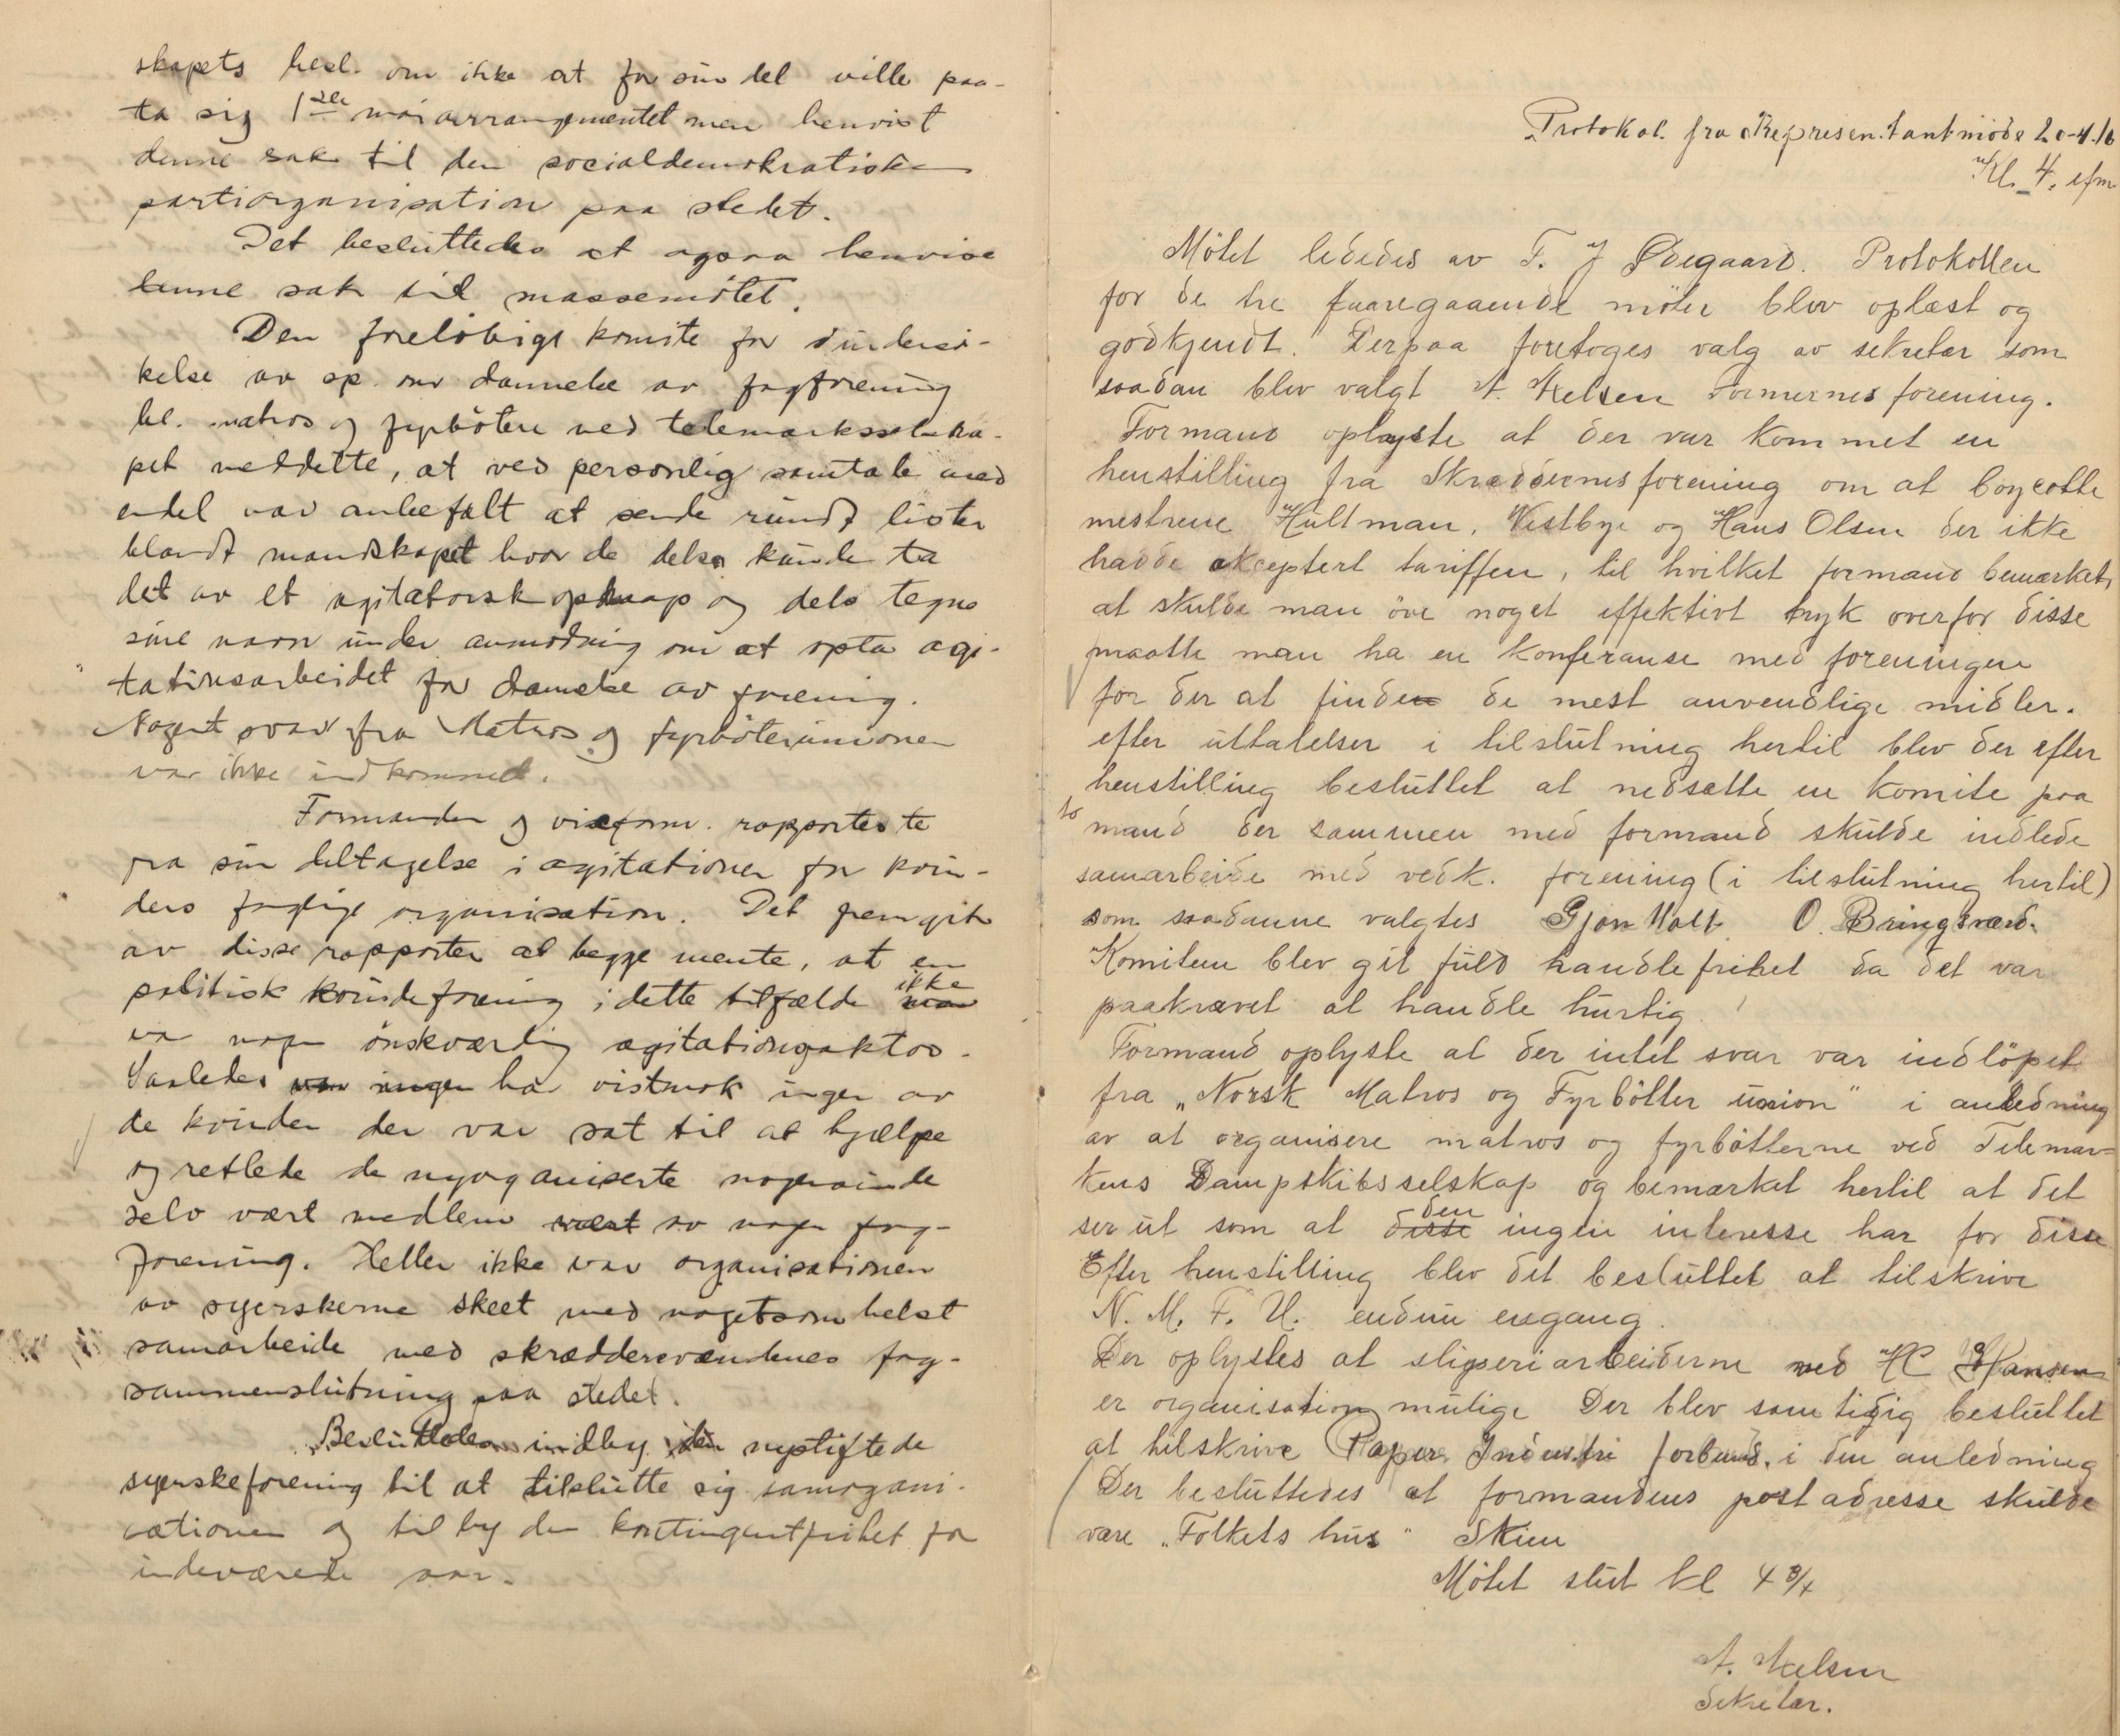 skapets besl. om ikke at for sin del ville paa-
ta sig 1ste maiarrangementet men henvist
denne sak til den socialdemokratiske
partiorganisation paa stedet.
Det besluttedes at ogsaa henvise
denne sak til massemötet.
Den forelöbige komite for undersö-
kelse av sp. om dannelse av fagforening
bl. matros og fyrbötere ved telemarksselska-
pet meddelte, at ved personlig samtale med
endel var anbefalt at sende rundt lister
blandt mandskapet hvor de dels kunde ta
det av et agitatorisk opraap og dels tegne
sine navn under anmodning om at opta agi-
tationsarbeidet for dannelse av forening.
Noget svar fra Matros og fyrböterunionen
var ikke indkommet.
Formanden og viseform. rapporterte
fra sin deltagelse i agitationen for kvin-
ders faglige organisation. Det fremgik
av disse rapporter at begge mente, at en
politisk kvindeforening i dette tilfælde ikke
var nogen önskværdig agitationsfaktor.
Saaledes har vistnok ingen av
de kvinder der var sat til at hjælpe
og retlede de nyorganiserte nogensinde
selv vært medlem av nogen fag-
forening. Heller ikke var organisationen
av syerskerne skeet med nogetsomhelst
samarbeide med skræddersvendenes fag-
sammenslutning paa stedet.
Besluttedes indby den nystiftede
syerskeforening til at tilslutte sig samorgani-
sationen og tilby den kontingentfrihet for
indeværende aar.
Protokol. fra Representantmöde 20-4.16
Kl. 4. efm
Mötet lededes av T. J Ödegaard. Protokollen
for de tre foaregaaende möter blev oplæst og
godkjendt. Derpaa foretoges valg av sekretær som
saadan blev valgt A. Axelsen Formernes forening.
Formand oplyste at der var kommet en
henstilling fra Skræddernes forening om at boycotte
mestrene Hultman, Vestbye og Hans Olsen der ikke
hadde akceptert tariffen, til hvilket formand bemærket,
at skulde man öve noget effektivt tryk overfor disse
maatte man ha en konferanse med foreningen
for der at finde de mest anvendlige midler.
efter uttalelser i tilslutning hertil blev der efter
henstilling besluttet at nedsætte en komite paa
to mand der sammen med formand skulde indlede
samarbeide med vedk. forening (i tilslutning hertil)
som saadanne valgtes Gjon Holt O. Bringsværd.
Komiteen blev git fuld handlefrihet da det var
paakrævet at handle hurtig.
Formand oplyste at der intet svar var indlöpet
fra „Norsk Matros og Fyrbötter union" i anledning
av at organisere matros og fyrbötterne ved Telemar-
kens Dampskibsselskap og bemærket hertil at det
ser ut som at disse den ingen interesse har for disse
Efter henstilling blev det besluttet at tilskrive
N. M. F. U. endnu engang.
Der oplystes at sliperiarbeiderne ved HC Hansen
er organisationsmulige Der blev samtidig besluttet
at tilskrive Papir Industri forbund. i den anledning
Der besluttedes at formandens postadresse skulde
være „Folkets hus" Skien
Mötet slut kl 4 3/4
A. Axelsen
Sekretær.